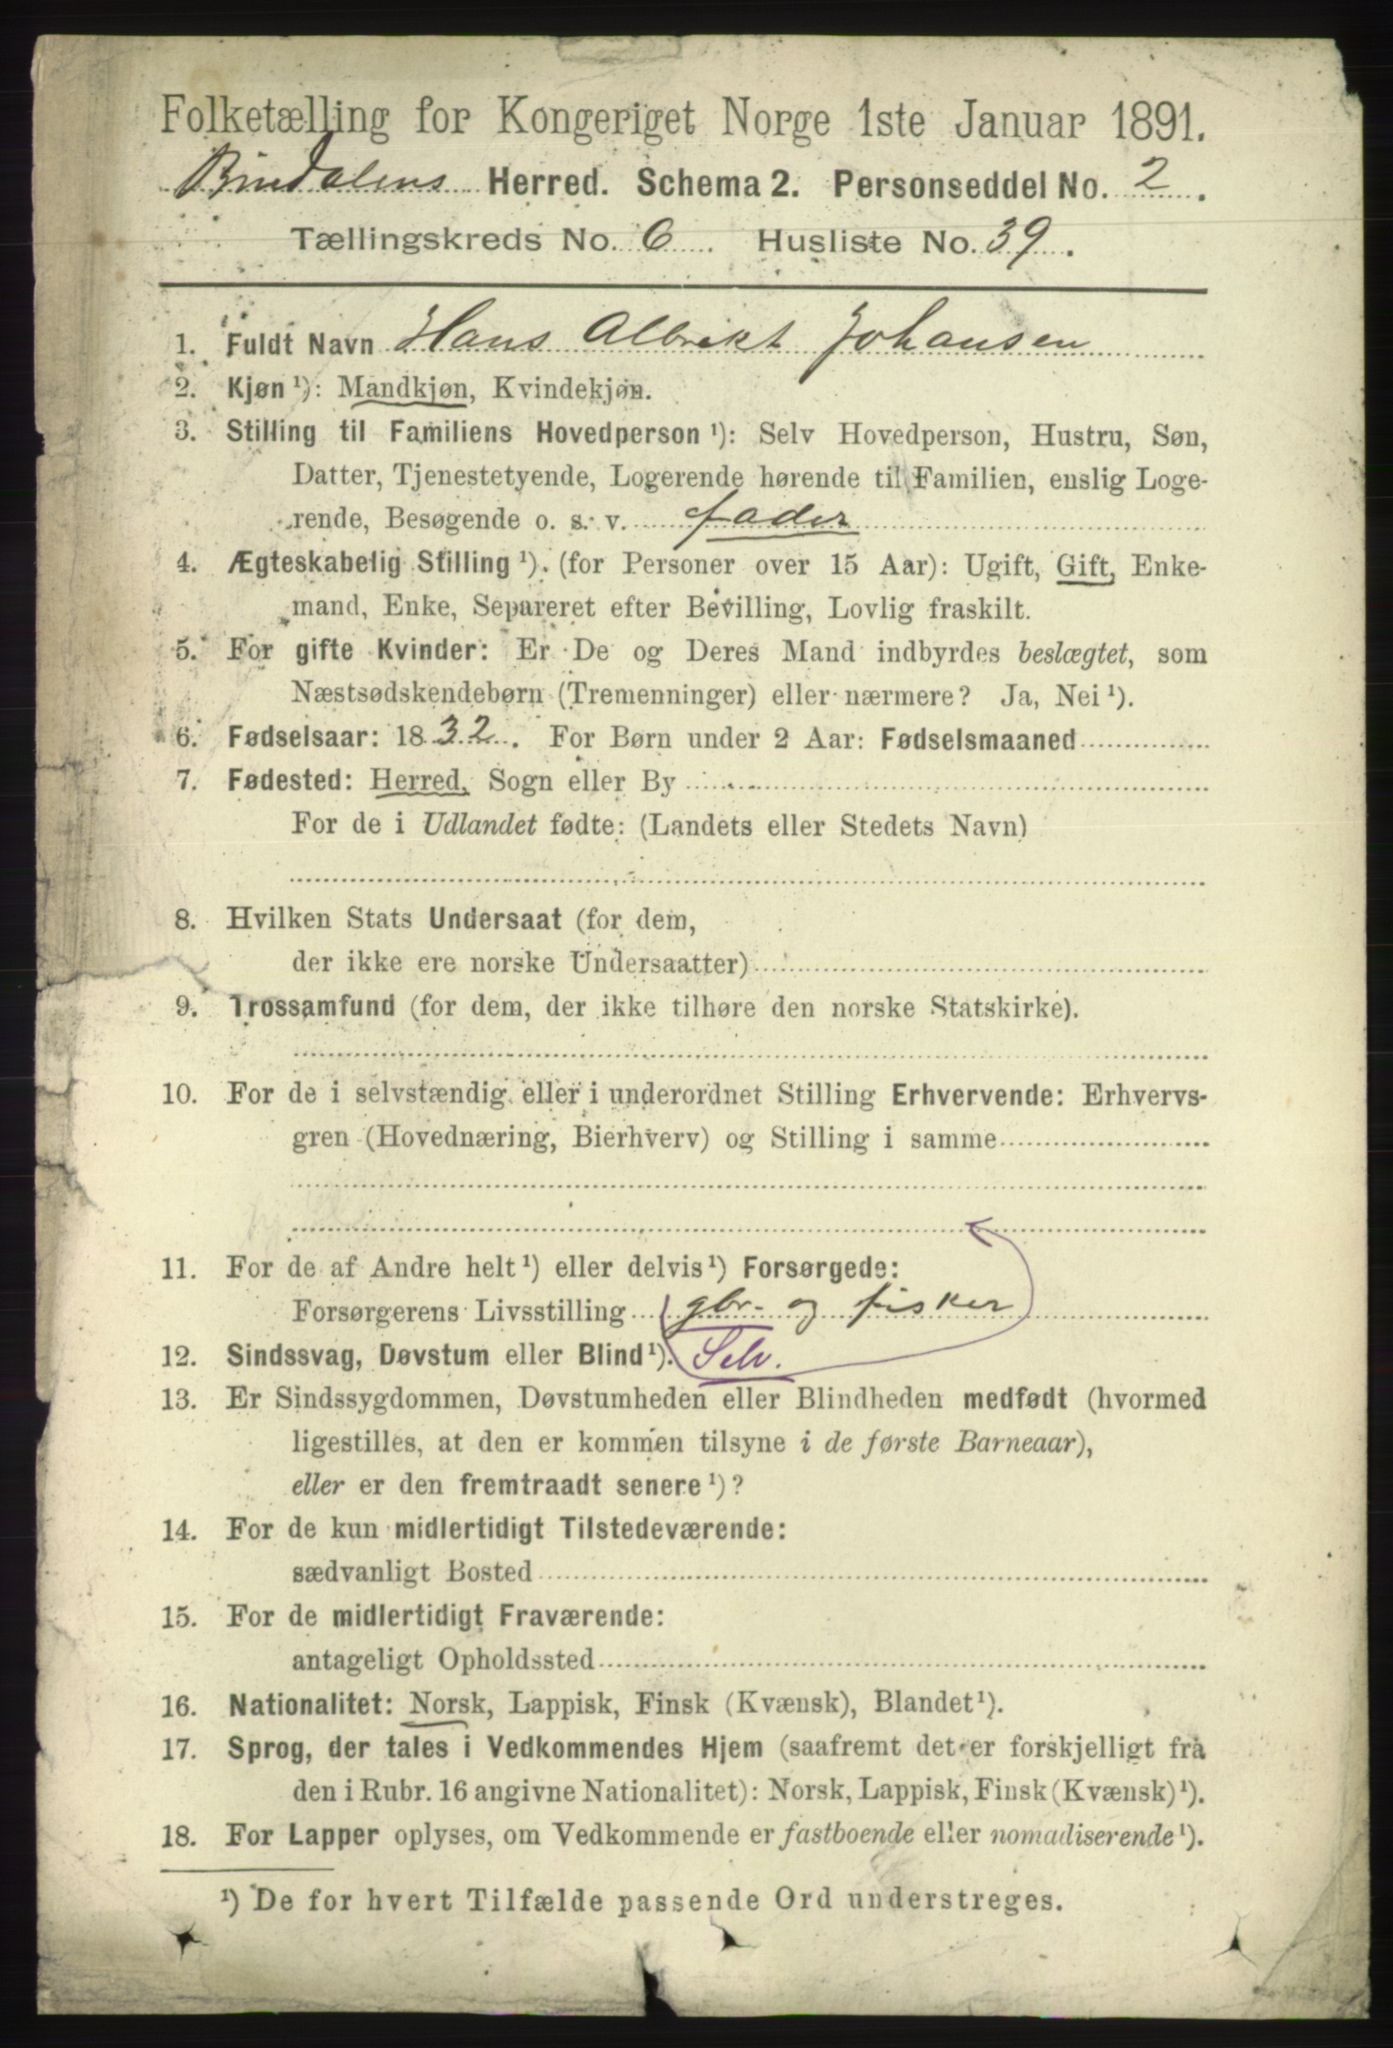 Folketælling for Kongeriget Norge 1ste Januar 1891.
Bindalens Herred. Schema 2. Personseddel No. 2.
Tællingskreds No. 6. Husliste No. 39.
1. Fuldt Navn Hans Albrekt Johansen
2. Kjøn ¹): Mandkjøn, Kvindekjøn.
3. Stilling til Familiens Hovedperson ¹): Selv Hovedperson, Hustru, Søn,
Datter, Tjenestetyende, Logerende hørende til Familien, enslig Loge-
rende, Besøgende o. s. v. fader
4. Ægteskabelig Stilling ¹). (for Personer over 15 Aar): Ugift, Gift, Enke-
mand, Enke, Separeret efter Bevilling, Lovlig fraskilt.
5. For gifte Kvinder: Er De og Deres Mand indbyrdes beslægtet, som
Næstsødskendebørn (Tremenninger) eller nærmere? Ja, Nei ¹).
6. Fødselsaar: 1832. For Børn under 2 Aar: Fødselsmaaned
7. Fødested: Herred, Sogn eller By
For de i Udlandet fødte: (Landets eller Stedets Navn)
8. Hvilken Stats Undersaat (for dem,
der ikke ere norske Undersaatter)
9. Trossamfund (for dem, der ikke tilhøre den norske Statskirke).
10. For de i selvstændig eller i underordnet Stilling Erhvervende: Erhvervs-
gren (Hovednæring, Bierhverv) og Stilling i samme
11. For de af Andre helt ¹) eller delvis ¹) Forsørgede:
Forsørgerens Livsstilling gbr. og fisker
12. Sindssvag, Døvstum eller Blind ¹). Selv.
13. Er Sindssygdommen, Døvstumheden eller Blindheden medfødt (hvormed
ligestilles, at den er kommen tilsyne i de første Barneaar),
eller er den fremtraadt senere ¹)?
14. For de kun midlertidigt Tilstedeværende:
sædvanligt Bosted
15. For de midlertidigt Fraværende:
antageligt Opholdssted
16. Nationalitet: Norsk, Lappisk, Finsk (Kvænsk), Blandet ¹).
17. Sprog, der tales i Vedkommendes Hjem (saafremt det er forskjelligt fra
den i Rubr. 16 angivne Nationalitet): Norsk, Lappisk, Finsk (Kvænsk) ¹).
18. For Lapper oplyses, om Vedkommende er fastboende eller nomadiserende ¹).
¹) De for hvert Tilfælde passende Ord understreges.